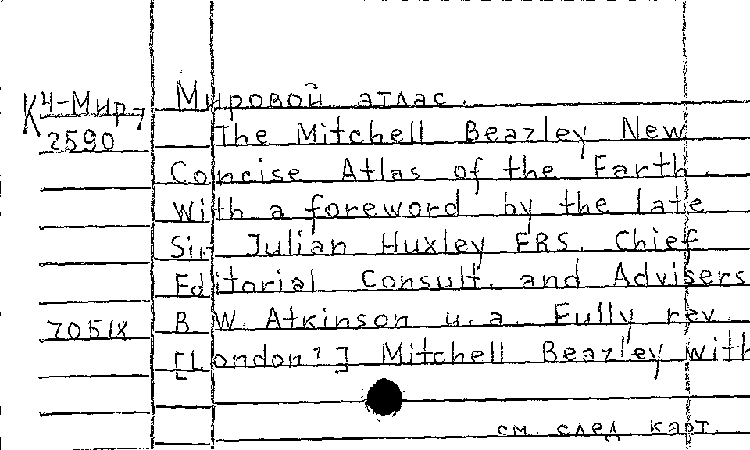 К4-Мир-7
2590
Мировой атлас.
The Mitchell Beazley New
Concise Atlas of the Earth.
With a foreword by the late
Sir Julian Huxley FRS. Chief
Editorial Consult. and Advisers
B. W. Atkinson u. a. Fully rev.
705IX
[London?] Mitchell Beazley with
см. след карт.